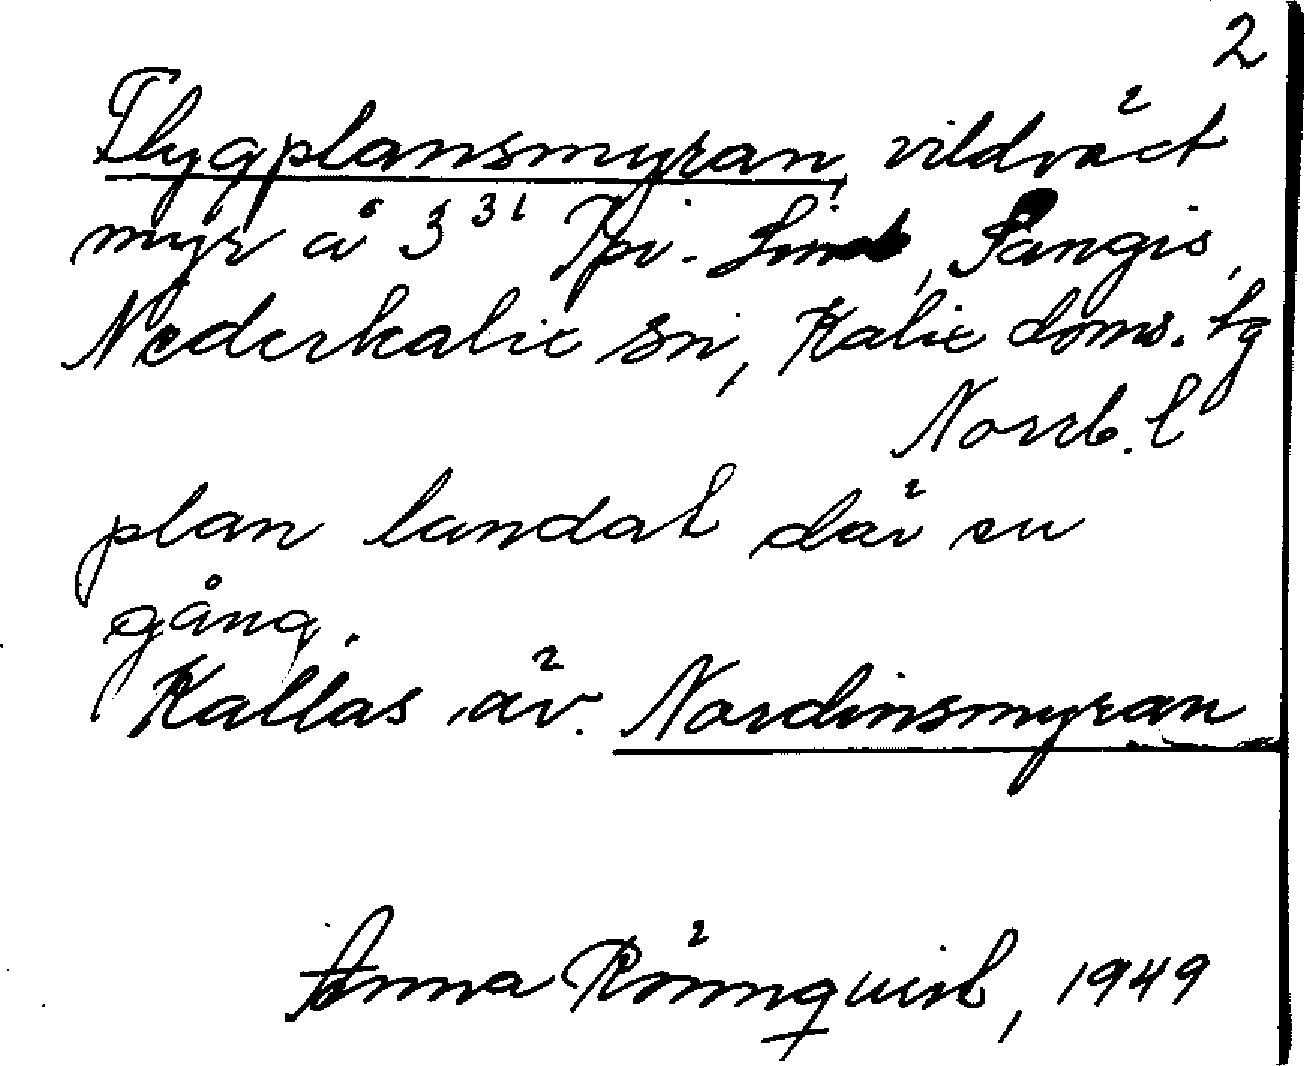 2
Flygplansmyran, vildväxt
myr å 3 31 Spi. Lind, Sangis,
Nederkalix sn, Kalix doms. tg
Norrb. l
plan landat där en
gång.
Kallas äv. Nordinsmyran
Anna Rönnquist, 1949